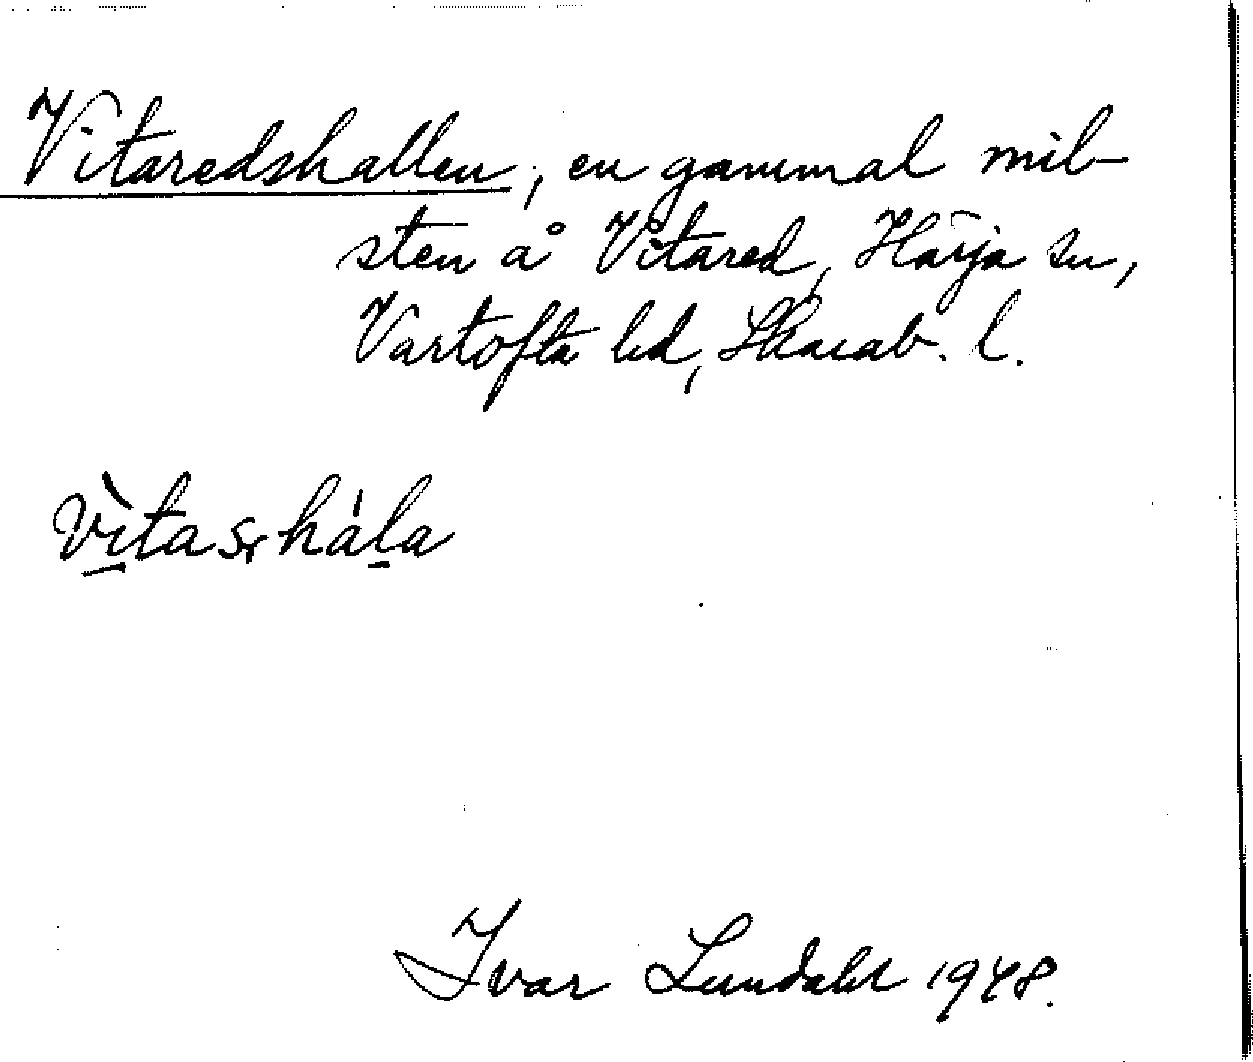 Vitaredshallen, en gammal mil-
sten å Vitared, Härja sn,
Vartofta hd, Skarab. l.
vìtasχhála
Ivar Lundahl 1948.